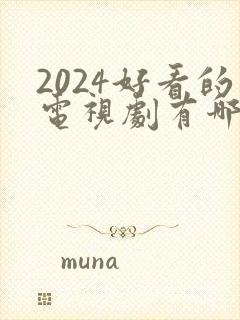 2024好看的
電視劇有哪
muna